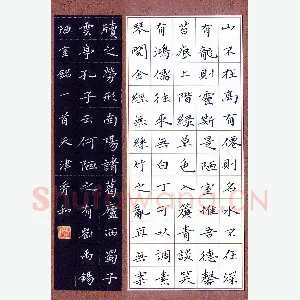 山不在高有僊則名水不在深
有龍則靈斯是陋室惟吾德馨
苔痕上階綠草色入簾青談笑
有鴻儒往來無白丁可以調素
琴閱金經無絲竹之亂耳無案
牘之勞形南陽諸葛廬西蜀子
雲亭孔子云何陋之有劉禹錫
陋室銘一首天津